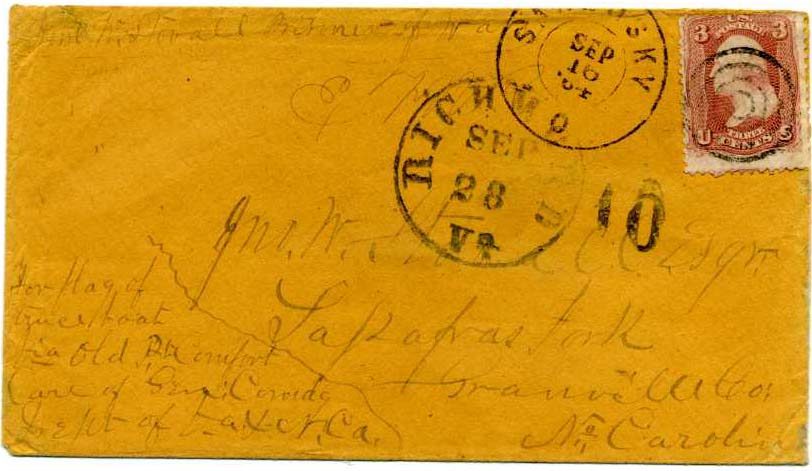 Prisoner of War
P. M.
SANDUSKY
SEP
16
64
3 U.S. 3
POSTAGE
U THREE S
CENTS
RICHMOND
SEP
28
Va
10
Jno. W. Esqr.
Sassafras Fork
Granville Co:
No. Carolina
For flag of
truce boat
Via Old Pt Comfort
Care of Genl: Comdg
Dept of Va & N. Ca.